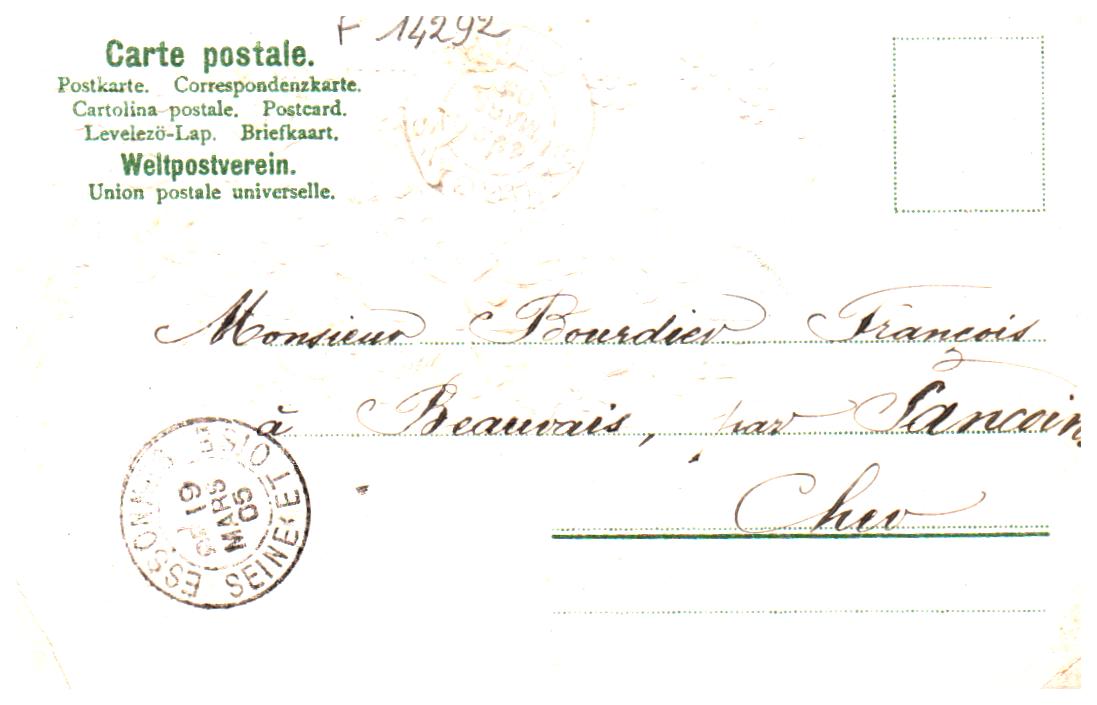 F 14292
Carte postale.
Postkarte. Correspondenzkarte.
Cartolina postale. Postcard.
Levelezö-Lap. Briefkaart.
Weltpostverein.
Union postale universelle.
Monsieur Bourdier François
à Beauvais, par Sancoins
Cher
ESSONNES
SEINE ET OISE
19
MARS
05